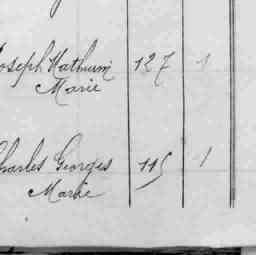 Joseph Mathurin 127 1
Marie
Charles Georges 115 1
Marie